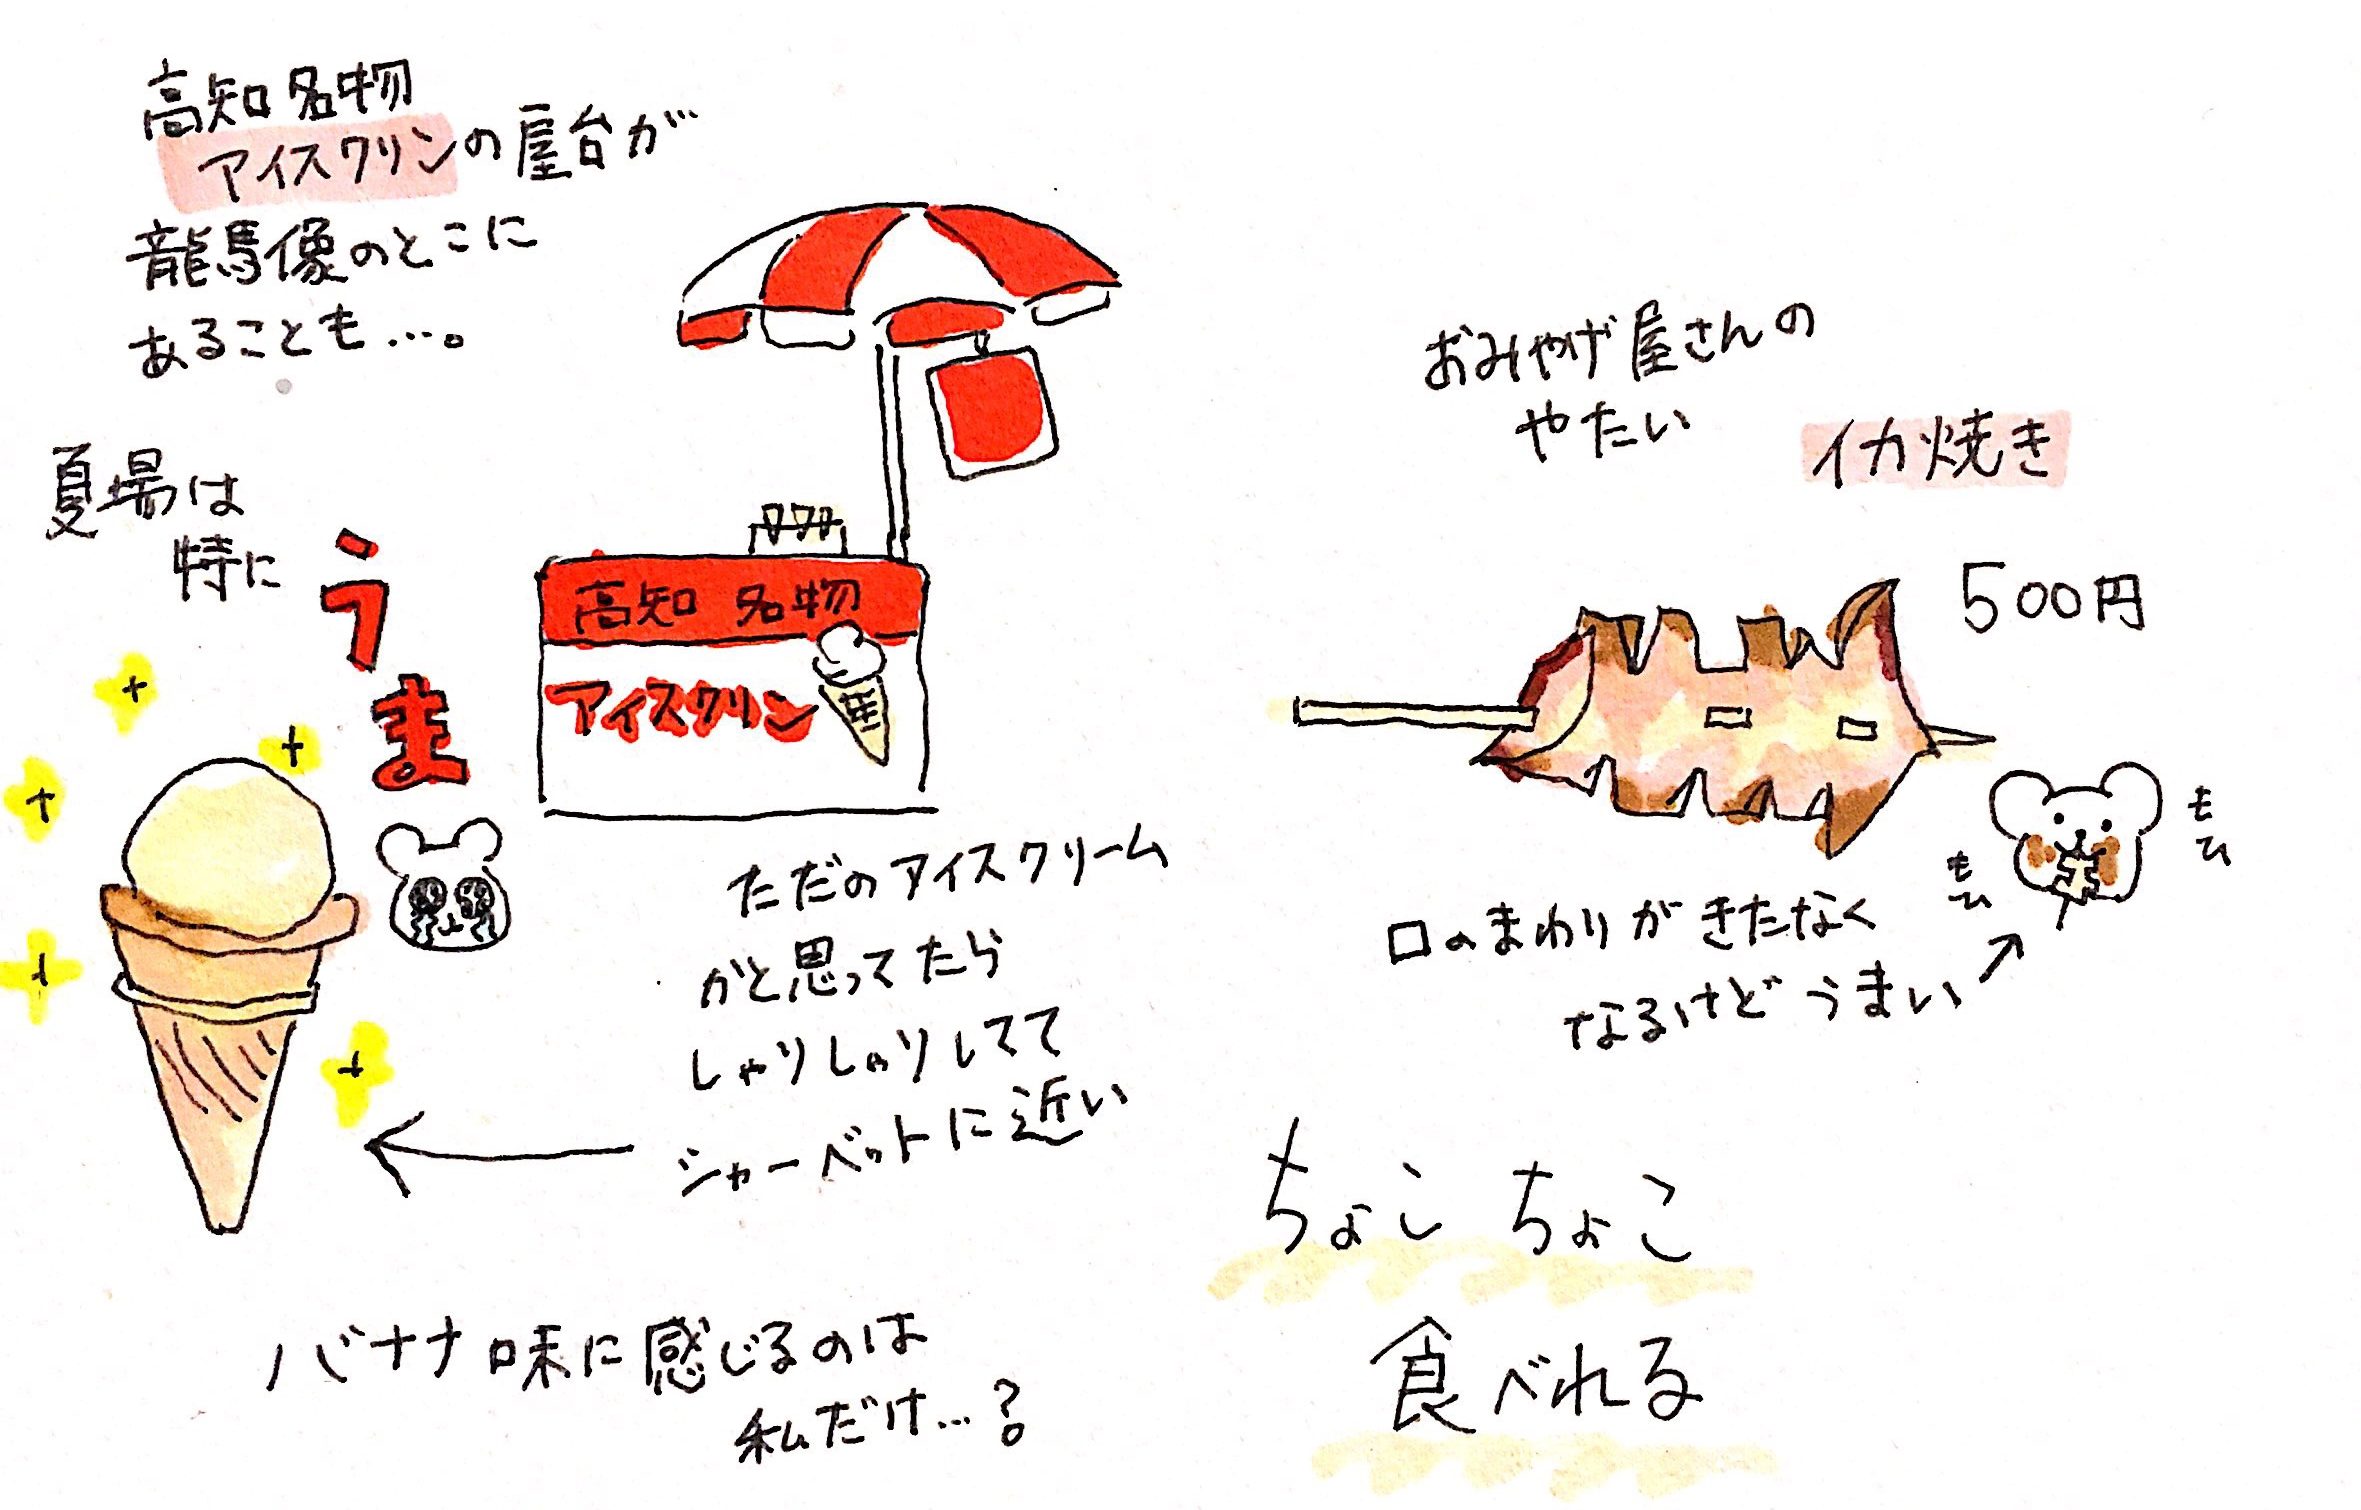 高知名物
アイスクリンの屋台が
龍馬像のとこに
あることも…。
夏場は
特に
うま
高知 名物
アイスクリン
ただのアイスクリーム
かと思ってたら
しゃりしゃりしてて
シャーベットに近い
バナナ味に感じるのは
私だけ…?
おみやげ屋さんの
やたい
イカ焼き
500円
もム
もム
口のまわりがきたなく
なるけどうまい
ちょこ ちょこ
食べれる